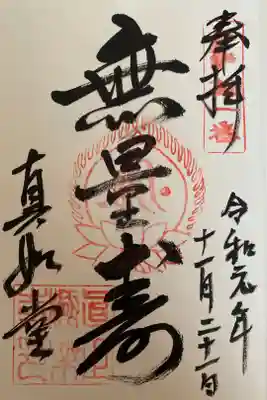 奉拝
令和元年
十一月二十一日
無量寿
真如堂